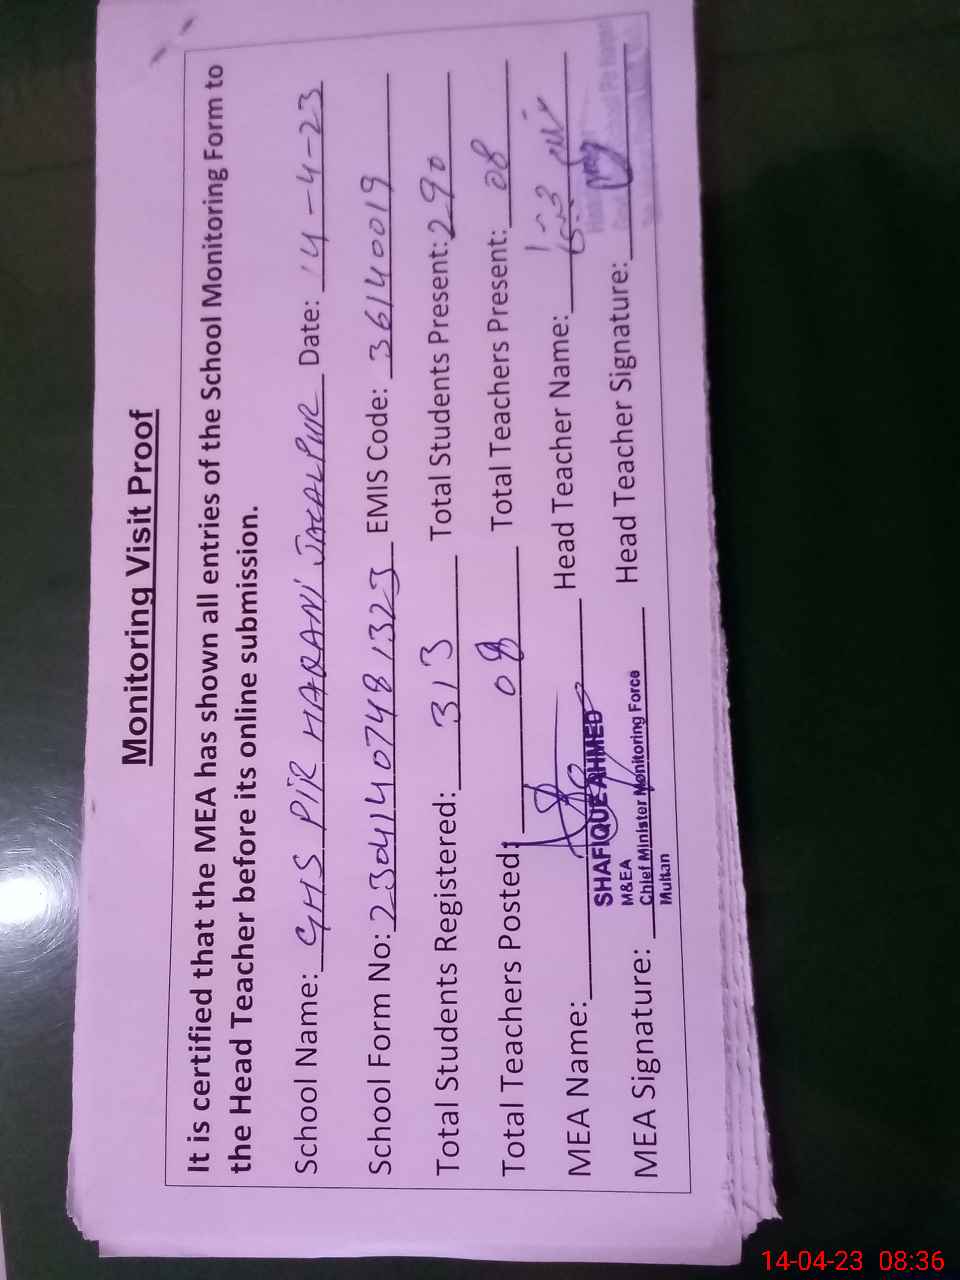 Monitoring Visit Proof
It is certified that the MEA has shown all entries of the School Monitoring Form to
the Head Teacher before its online submission.
School Name: GHS PIR HARANI JALALPUR Date: 14-4-23
School Form No: 23041407481323 EMIS Code: 36140019
Total Students Registered: 313 Total Students Present: 290
Total Teachers Posted: 08 Total Teachers Present: 08
MEA Name: Head Teacher Name:
SHAFIQUE AHMED
M&EA
Chief Minister Monitoring Force
Multan
MEA Signature: Head Teacher Signature:
14-04-23 08:36